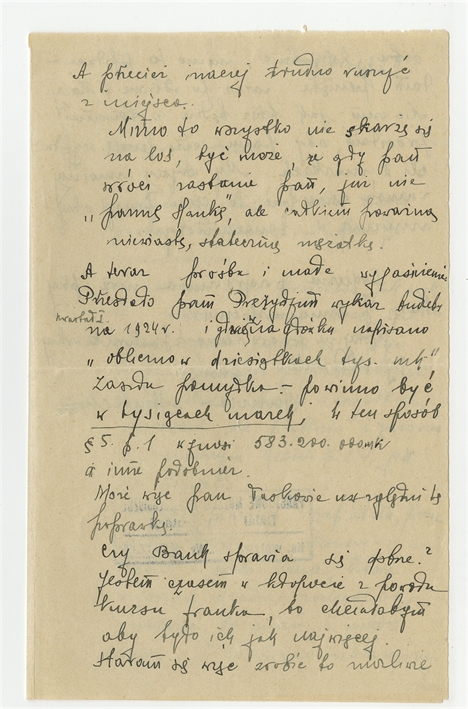 A przecież inaczej trudno ruszyć
z miejsca.
Mimo to wszystko nie skarżę się
na los, być może, że gdy Pan
wróci zastanie Pan, już nie
„Pannę Hankę", ale całkiem poważną
niewiastę, stateczną mężatkę.
A teraz prośba i małe wyjaśnienie
Pan Prezydjum wykaz
kwartał I.
na 1924 r. i napisano
„obliczono w dziesiątkach tys. mk"
Zaszła pomyłka – powinno być
w tysiącach marek, w ten sposób
§ 5. p. 1 wynosi 583.200.000 mk
a inne podobnież.
Może więc Pan łaskawie uwzględni tę
poprawkę.
Czy Bank sprawia się dobrze?
Jestem czasem w kłopocie z powodu
kursu franka, bo chciałabym
aby było ich jak najwięcej.
Staram się więc zrobić to możliwie